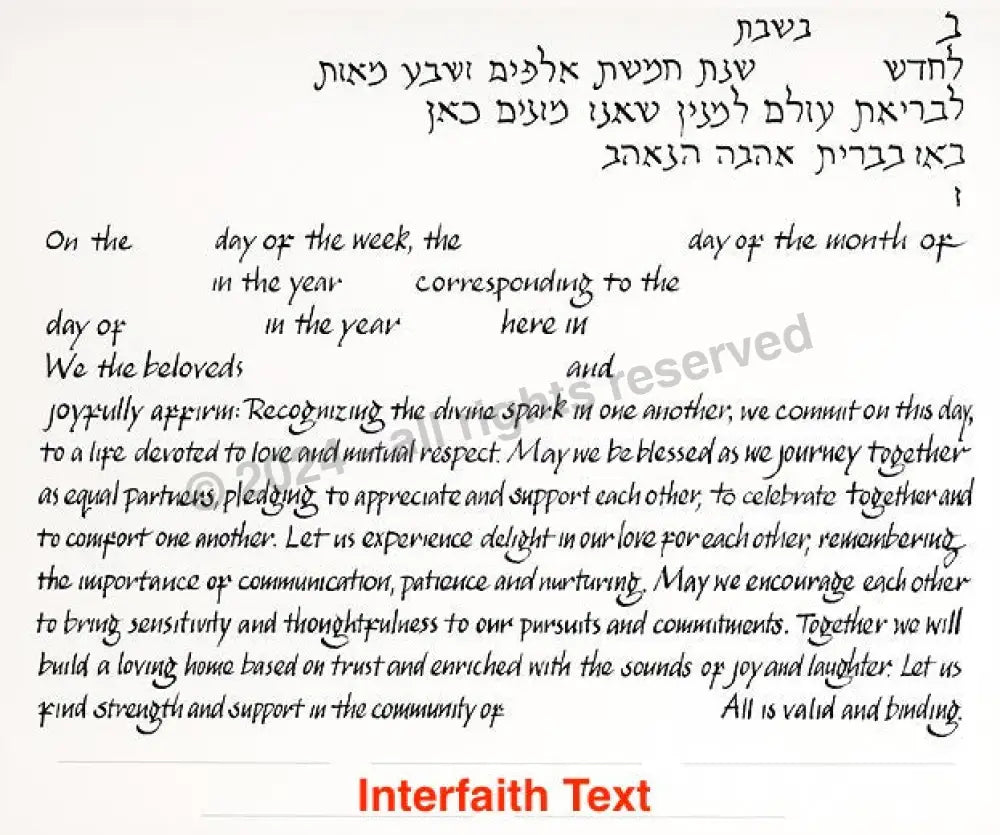 ב בשבת
לחדש שנת חמשת אלפים ושבע מאות
לבריאת עולם למנין שאנו מונים כאן
באו בברית אהבה הנאהב
ו
On the day of the week, the day of the month of
in the year corresponding to the
day of in the year here in
We the beloveds and
joyfully affirm: Recognizing the divine spark in one another, we commit on this day,
to a life devoted to love and mutual respect. May we be blessed as we journey together
as equal partners, pledging to appreciate and support each other, to celebrate together and
to comfort one another. Let us experience delight in our love for each other, remembering
the importance of communication, patience and nurturing. May we encourage each other
to bring sensitivity and thoughtfulness to our pursuits and commitments. Together we will
build a loving home based on trust and enriched with the sounds of joy and laughter. Let us
find strength and support in the community of All is valid and binding.
© 2024 - all rights reserved
Interfaith Text